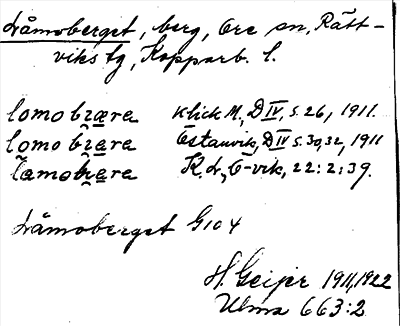 Låmoberget, berg, Ore sn, Rätt-
viks tg, Kopparb. l.
lomobzæra Klick M, D IV, s. 26, 1911.
lomobzara Östanvik, D IV s. 30,32, 1911
Lamobzæra K.L., Ö-vik, 22:2:39.
Låmoberget G104
H. Geijer 1911,1922
Ulma 663:2